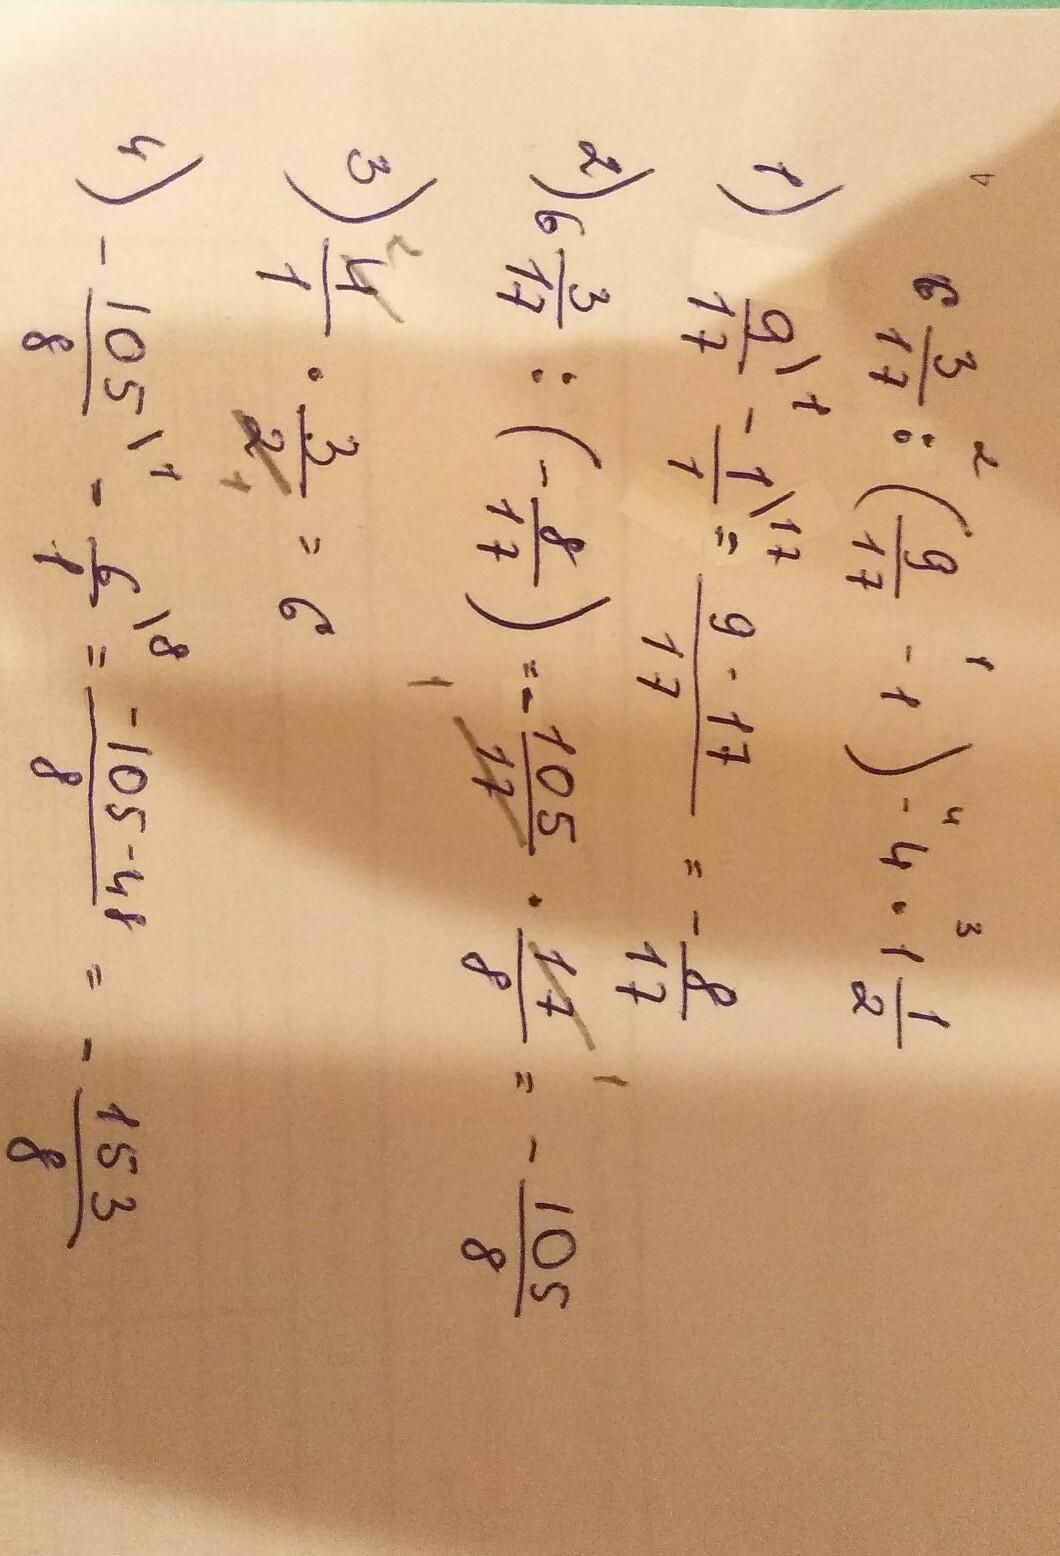 6 3/17 : (9/17 - 1) - 4 · 1 1/2
2 1 4 3
1) 9/17 \1 - 1/1 \17 = 9-17/17 = - 8/17
2) 6 3/17 : (- 8/17) = - 105/17 · 17/8 = - 105/8
1 1
3) 4/1 · 3/2 = 6
2 1
4) - 105/8 \1 - 6/1 \8 = -105-48/8 = - 153/8